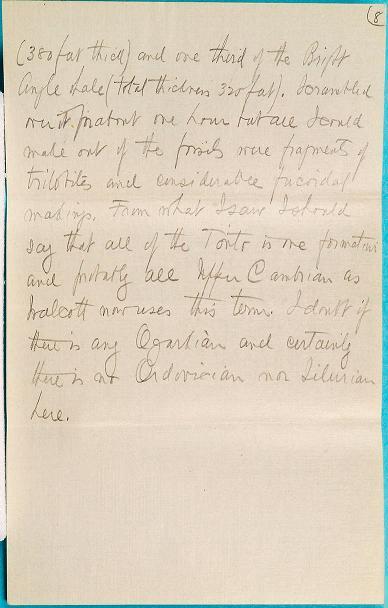 8
(380 feet thick) and one third of the Bright
Angle shale (total thickness 320 feet). I scrambled
over it for about one hour but all I could
make out of the fossils were fragments of
trilobites and considerable fucoidal
markings. From what I saw I should
say that all of the Tonto is one formation
and probably all Upper Cambrian as
Walcott now uses this term. I doubt if
there is any Ozarkian and certainly
there is no Ordovician nor Silurian
here.